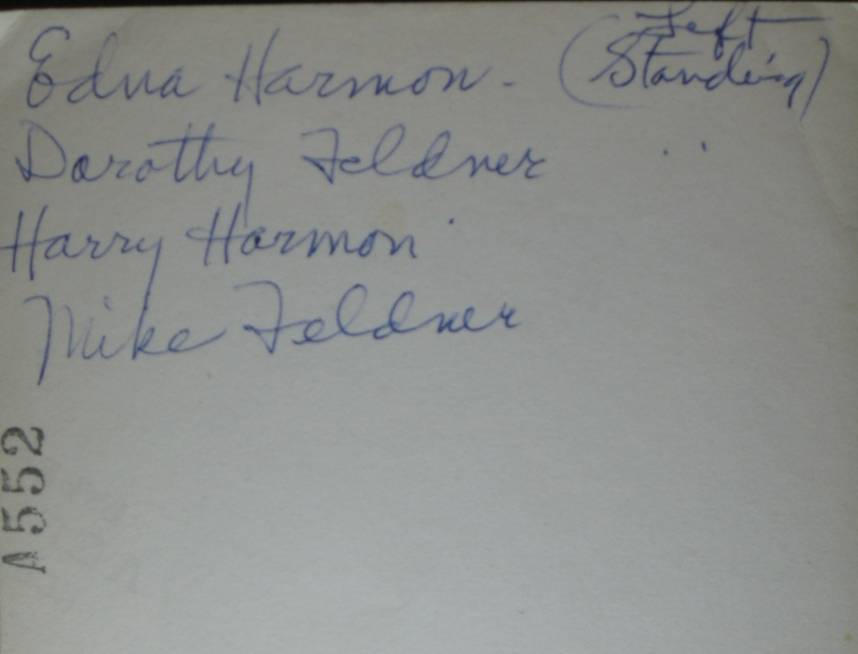 Edna Harmon - (Left Standing)
Dorothy Feldner "
Harry Harmon
Mike Feldner
A552